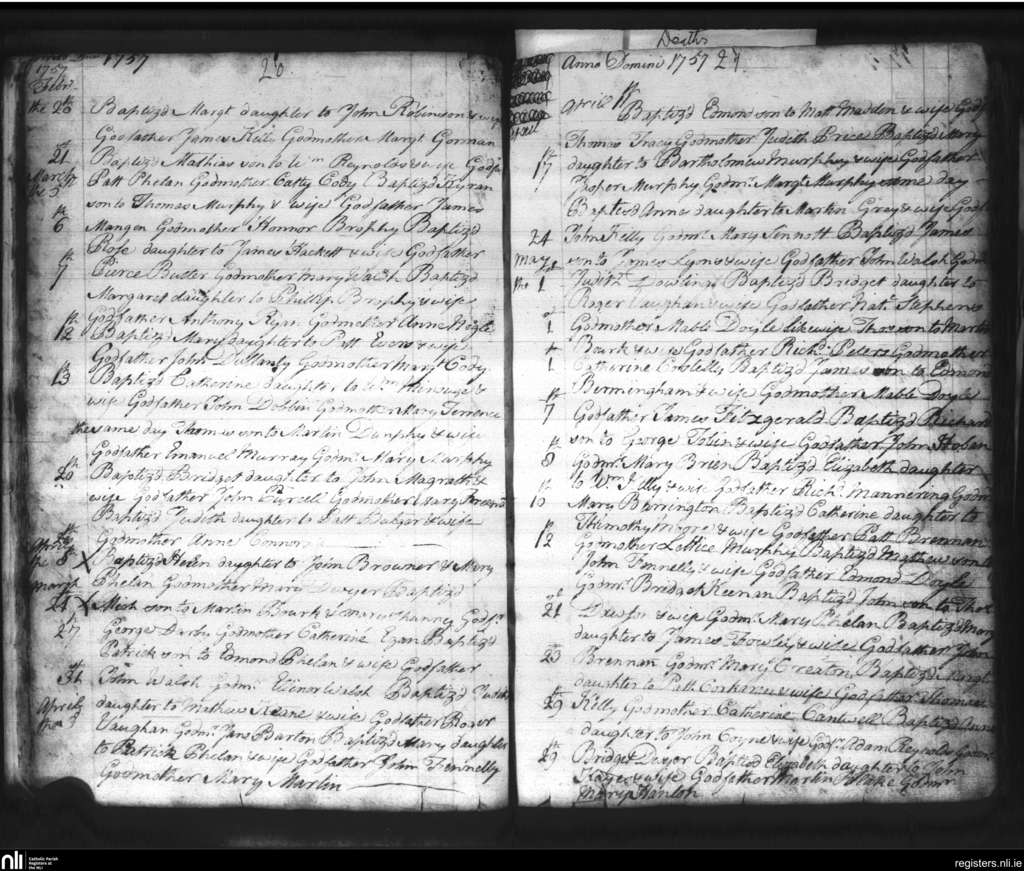 Anno Dom 1757
26.
1757
Febr.
the 20th Baptiz'd Margt daughter to John Robinson & wife
Godfather James Kelly Godmother Margt Gorman
21st Baptiz'd Mathias son to Wm Reynolds & wife Godfr
March Patt Phelan Godmother Catty Cody Baptiz'd Kyran
the 5th son to Thomas Murphy & wife Godfather James
6th Mangan Godmother Honnor Brophy Baptiz'd
Rose daughter to James Hackett & wife Godfather
7th Pierce Butler Godmother Mary Walsh Baptiz'd
Margaret daughter to Phillip Brophy & wife
Godfather Anthony Ryan Godmother Anne
12th Baptiz'd Mary daughter to Patt & wife
Godfather John Dullanty Godmother Mary Cody
13th Baptiz'd Catherine daughter to Wm & 
wife Godfather John Dobbin Godmother Mary Terrence
the same day Thomas son to Martin Dunphy & wife
Godfather Emanuel Murray Godmr Mary Murphy
20th Baptiz'd Bridget daughtr to John Magrath &
wife Godfather John Purcell Godmother Mary
Baptiz'd Judith daughter to Patt Bulger & wife
Godmother Anne Connors
April the 8 X Baptiz'd Helen daughter to John Browner & Mary
March Phelan Godmother Mary Dwyer Baptiz'd
24 X Mich son to Martin Bourk & Godfr
27 George Darby Godmother Catherine Egan Baptiz'd
Patrick son to Edmond Phelan & wife Godfather
31st John Walsh Godmr Elinor Walsh Baptiz'd Judith
April daughter to Mathew Keane & wife Godfather Roger
the 3 Vaughan Godmr Jane Barton Baptiz'd Mary daughter
to Patrick Phelan & wife Godfather John Fennelly
Godmother Mary Martin
Deaths
Anno Domini 1757 27
April
April 11th Baptiz'd Edmond son to Matt Madden & wife Godf
Thomas Tracy Godmother Judith Price Baptiz'd Mary
17th daughter to Bartholomew Murphy & wife Godfather
Jasper Murphy Godmr Margt Murphy same day
Baptiz'd Anne daughter to Martin Grey & wife Godf
24 John Kelly Godmr Mary Sinnott Baptiz'd James
May son to James Lyons & wife Godfather John Walsh Godm
the 1st Judith Dowling Baptiz'd Bridget daughter to
Roger Vaughan & wife Godfather Nath. Stephens
1st Godmother Mable Doyle likewise Thos son to Martin
Bourk & wife Godfather Richd Peters Godmother
1 Catherine Baptiz'd James son to Edmond
Birmingham & wife Godmother Mable Doyle
7th Godfather James Fitzgerald Baptiz'd Richard
son to George Tobin & wife Godfather John Hoban
8th Godmr Mary Brien Baptiz'd Elizabeth daughter
to Wm & wife Godfather Richd Mannering Godm
10th Mary Berrington Baptiz'd Catherine daughter to
Thimothy & wife Godfather Patt Brennan
12th Godmother Lettice Murphy Baptiz'd Mathew son to
John Fennelly & wife Godfather Edmond Doyle
Godmr Bridget Keenan Baptiz'd John son to Thos
21st & wife Godmr Mary Phelan Baptiz'd Mary
daughter to James & wife Godfather John
23 Brennan Godmr Mary Creaton Baptiz'd Margt
daughter to Patt Corkeran & wife Godfather Thomas
29th Kelly Godmother Catherine Cantwell Baptiz'd Anne
daughter to John Coyne & wife Godfr Adam Reynolds Godm
29th Bridget Baptiz'd Elizabeth daughter to John
& wife Godfather Martin Blake Godmr
Mary Hanlon
nli Catholic Parish
Registers at
the NLI
registers.nli.ie